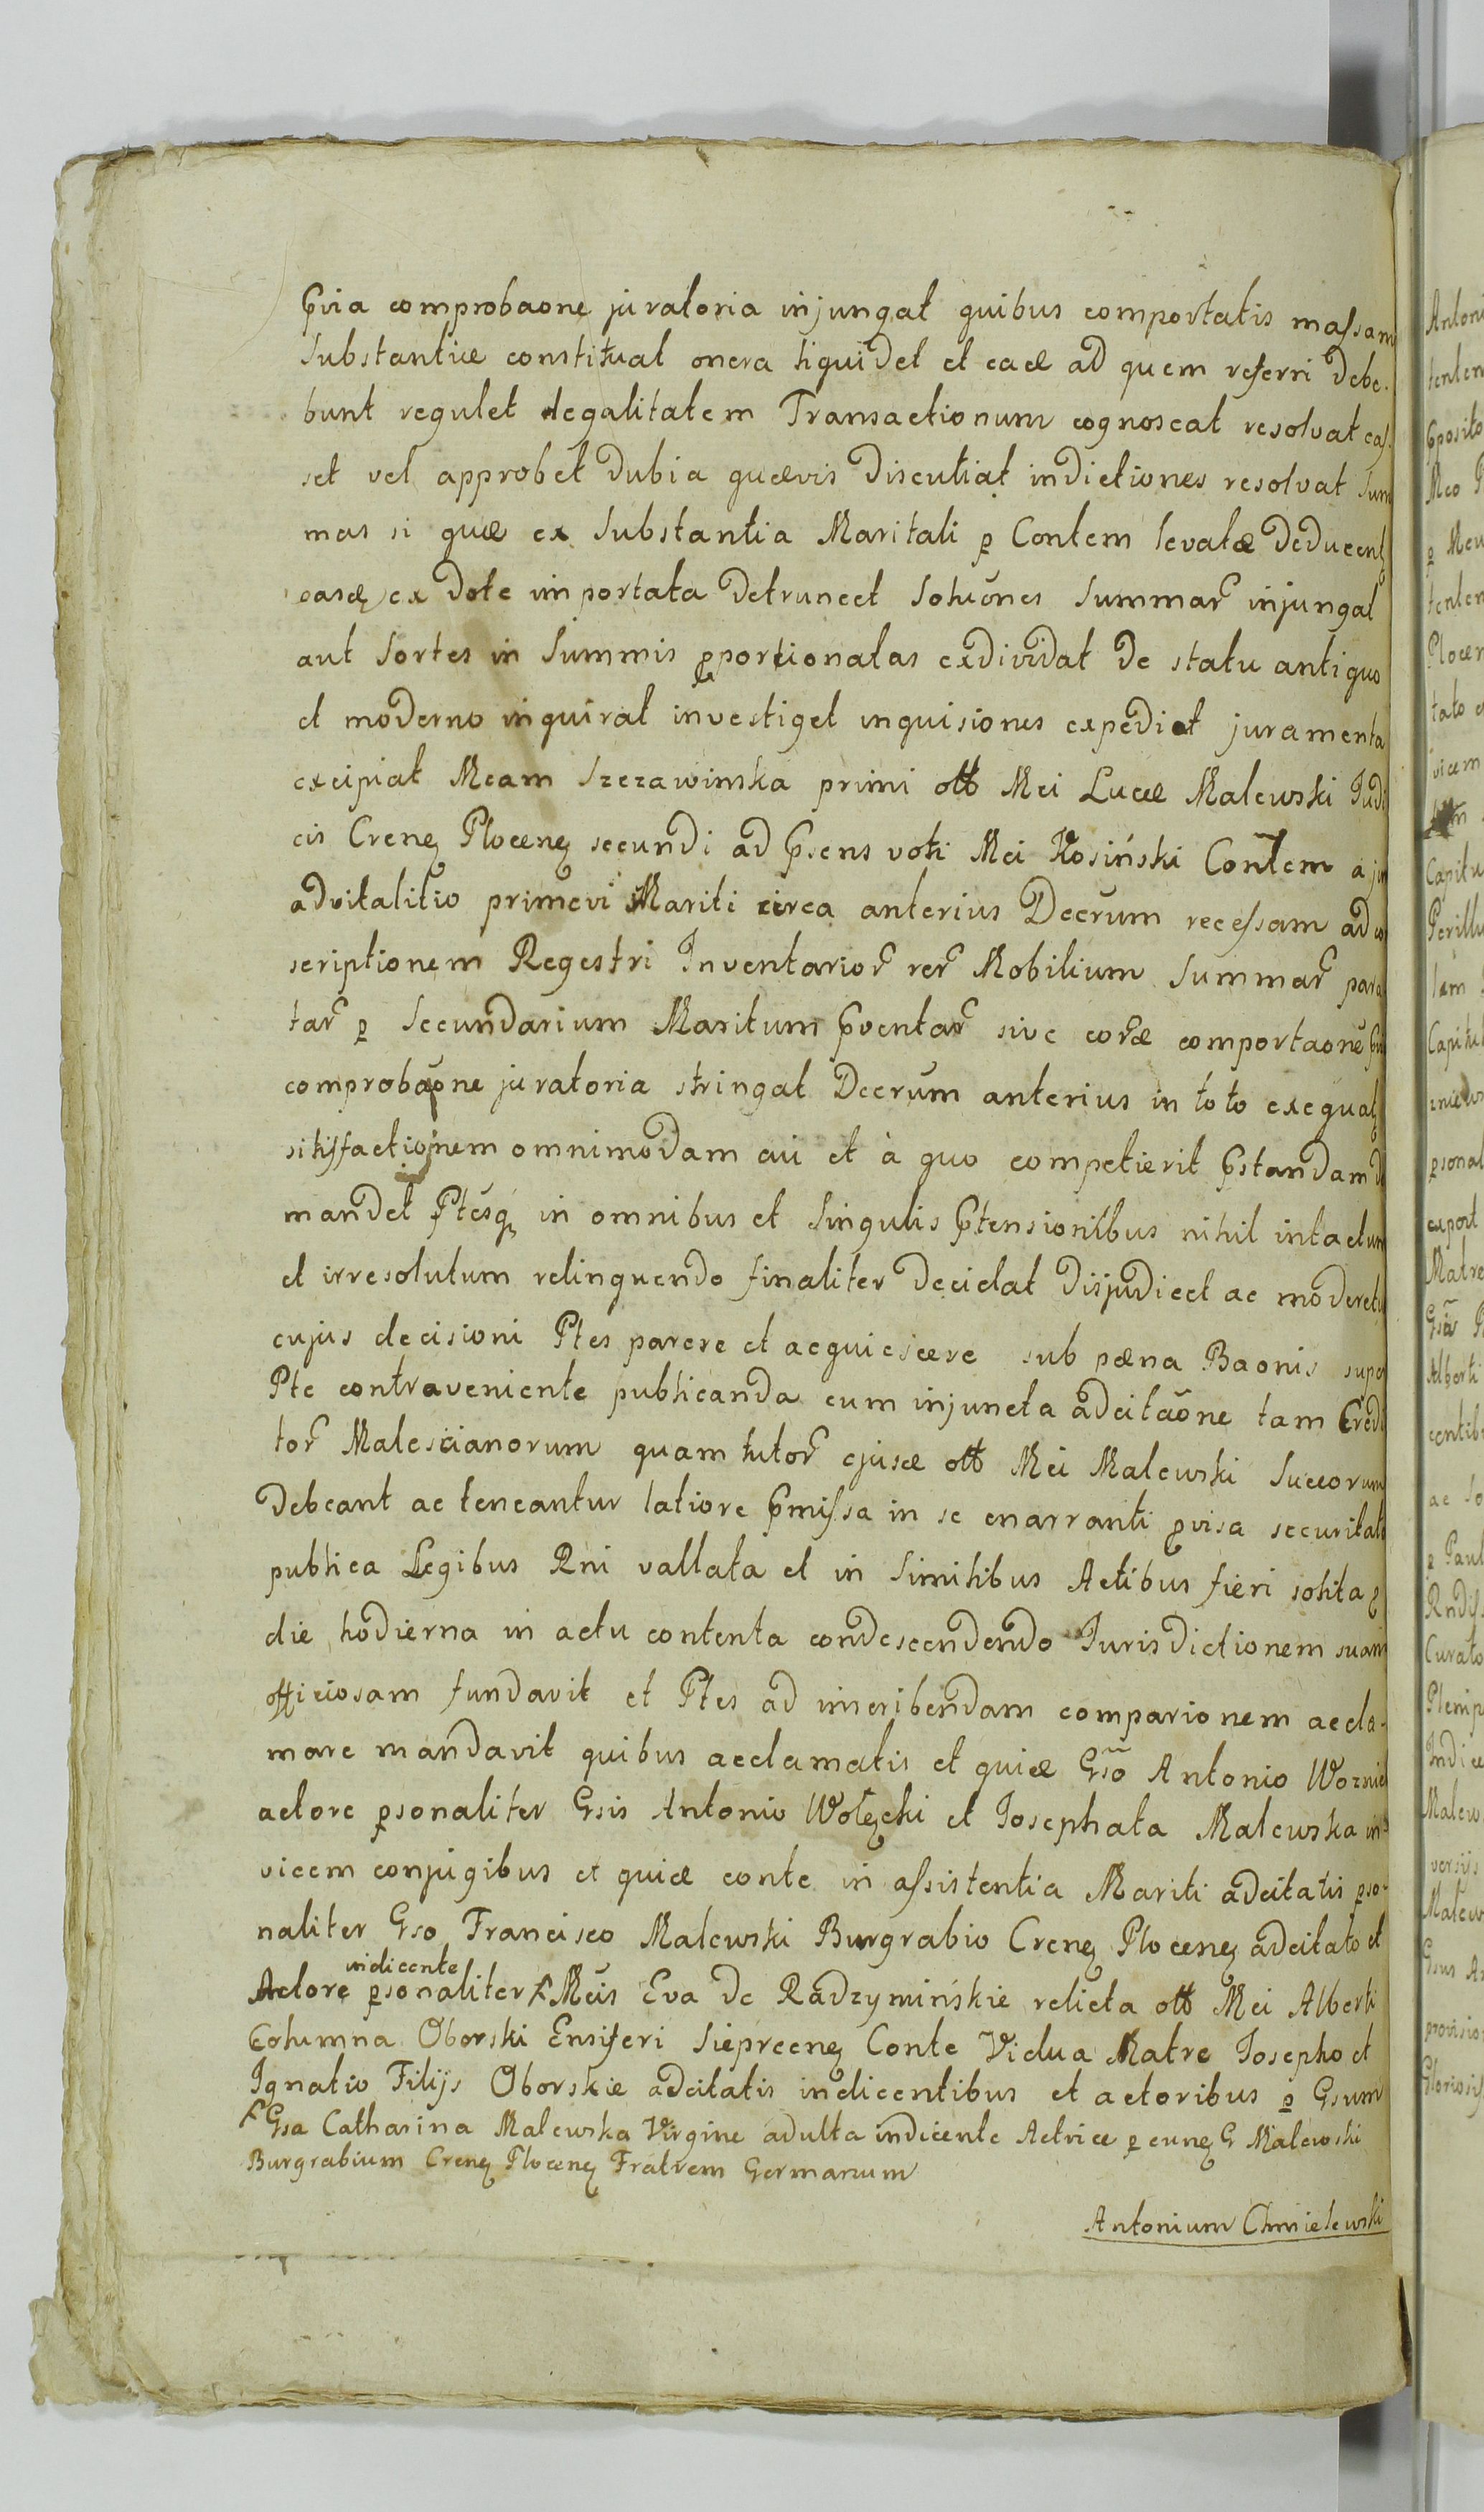 Pvia comprobaone juratoria injungat quibus comportatis massam
substantiæ constituat onera liquidet et eaæ ad quem referri debe-
bunt regulet legalitatem Transactionum cognoscat resolvat cas-
set vel approbet dubia quævis discutiat indictiones resolvat Sum
mas si quæ ex Substantia Maritali p Contem levatæ deducent
easq ex dote importata detruncet Soluones Summar injungat
aut Sortes in Summis pportionatas exdividat de statu antiquo
et moderno inquirat investiget inquisiones expediat juramenta
excipiat Mcam Szczawinska primi olt Mci Lucæ Malewski Judi
cis Crenq Plocenq secundi ad Psens voti Mci Kosiński Contem a ju
advitalitio primevi Mariti circa anterius Decrum recessam ad co
scriptionem Regestri Inventarior rer Mobilium Summar para
tar p Secundarium Maritum Pventar sive eoræ comportaone Pvi
comprobaone juratoria stringat Decrum anterius in toto exequat
sitisfactionem omnimodam cui et à quo competierit Pstandam de
mandet Ptesq in omnibus et Singulis Ptensionibus nihil intactum
et irresolutum relinquendo finaliter decidat disjudicet ac moderetu
cujus decisioni Ptes parere et acquiescere sub pæna Baonis super
Pte contraveniente publicanda cum injuncta adcitaone tam Credi
tor Malescianorum quam tutor ejusæ olt Mci Malewski Succorum
Debeant ac teneantur latiore Pmissa in se enarranti pvisa securitate
publica Legibus Rni vallata et in Similibus Actibus fieri solita p
die hodierna in actu contenta condescendendo Jurisdictionem suam
officiosam fundavit et Ptes ad inscribendam comparionem accla-
mare mandavit quibus acclamatis et quiæ Gso Antonio Wozni
actore psonaliter Gsis Antonio Wołęcki et Josephata Malewska in
vicem conjugibus et quiæ conte in assistentia Mariti adcitatis pso-
naliter Gso Francisco Malewski Burgrabio Crenq Plocenq adcitato et
indicente
Actore psonaliter Mcis Eva de Radzymińskie relicta olt Mci Alberti
Columna Oborski Ensiferi Sieprcenq Conte Vidua Matre Josepho et
Ignatio Filijs Oborskie adcitatis indicentibus et actoribus p Gsum
Gsa Catharina Malewska Virgine adulta indicente Actrice p eunq G Malewski
Burgrabium Crenq Plocenq Fratrem Germanum
Antonium Chmielewski